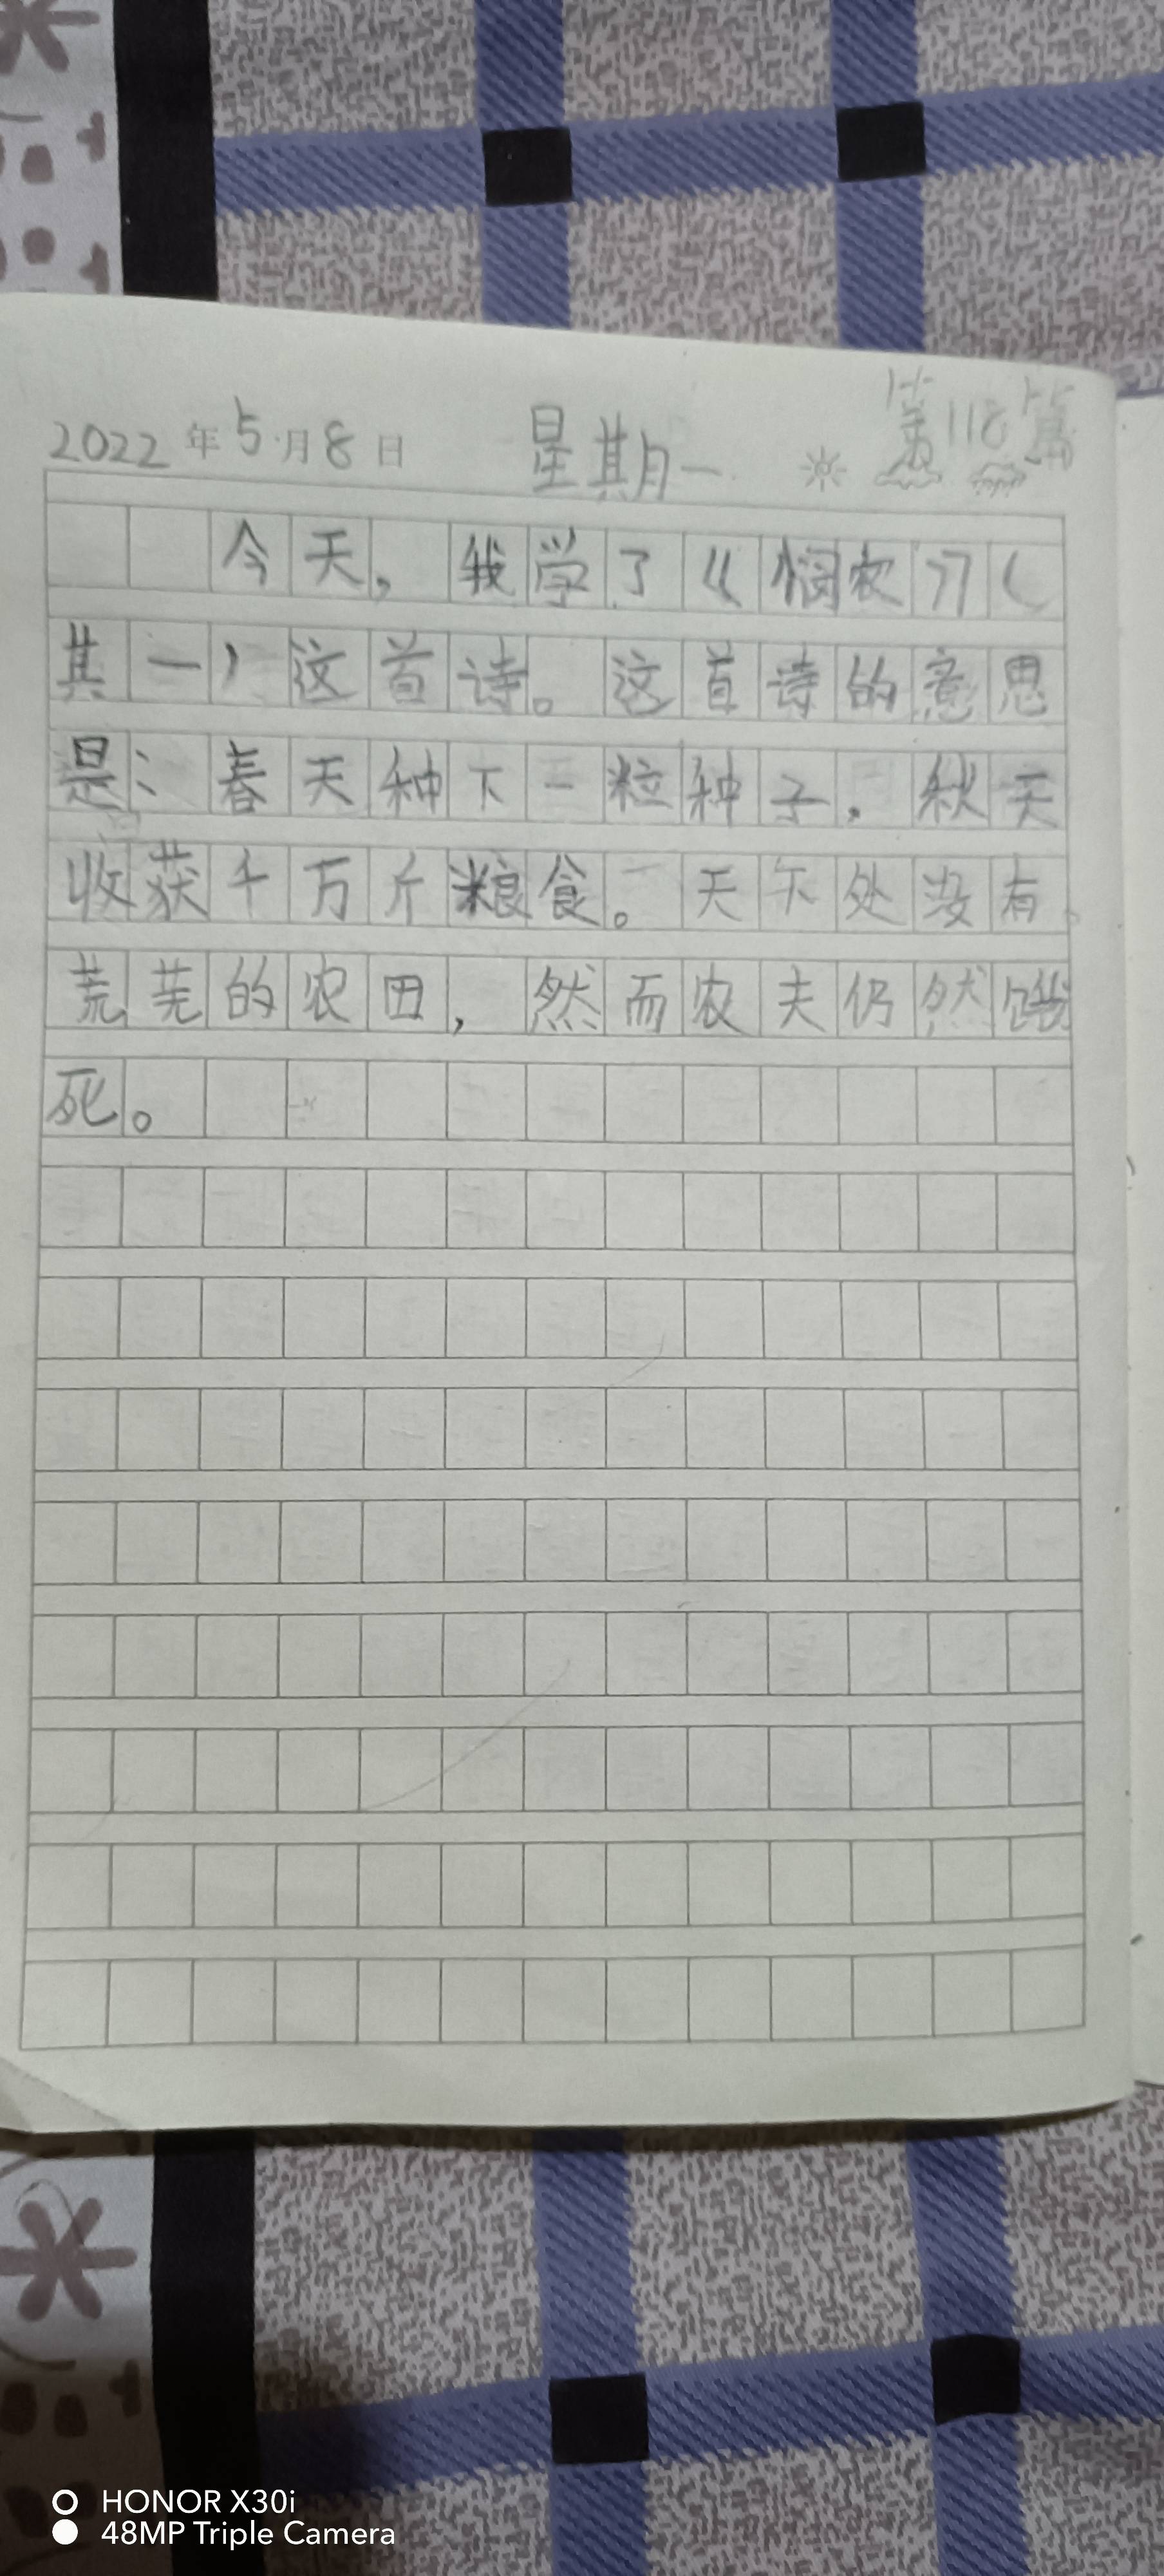 2022年5月8日 星期一 第118篇
今天，我学了《悯农》（
其一）这首诗。这首诗的意思
是：春天种下一粒种子，秋天
收获千万斤粮食。天下处没有
荒芜的农田，然而农夫仍然饿
死。
HONOR X30i
48MP Triple Camera